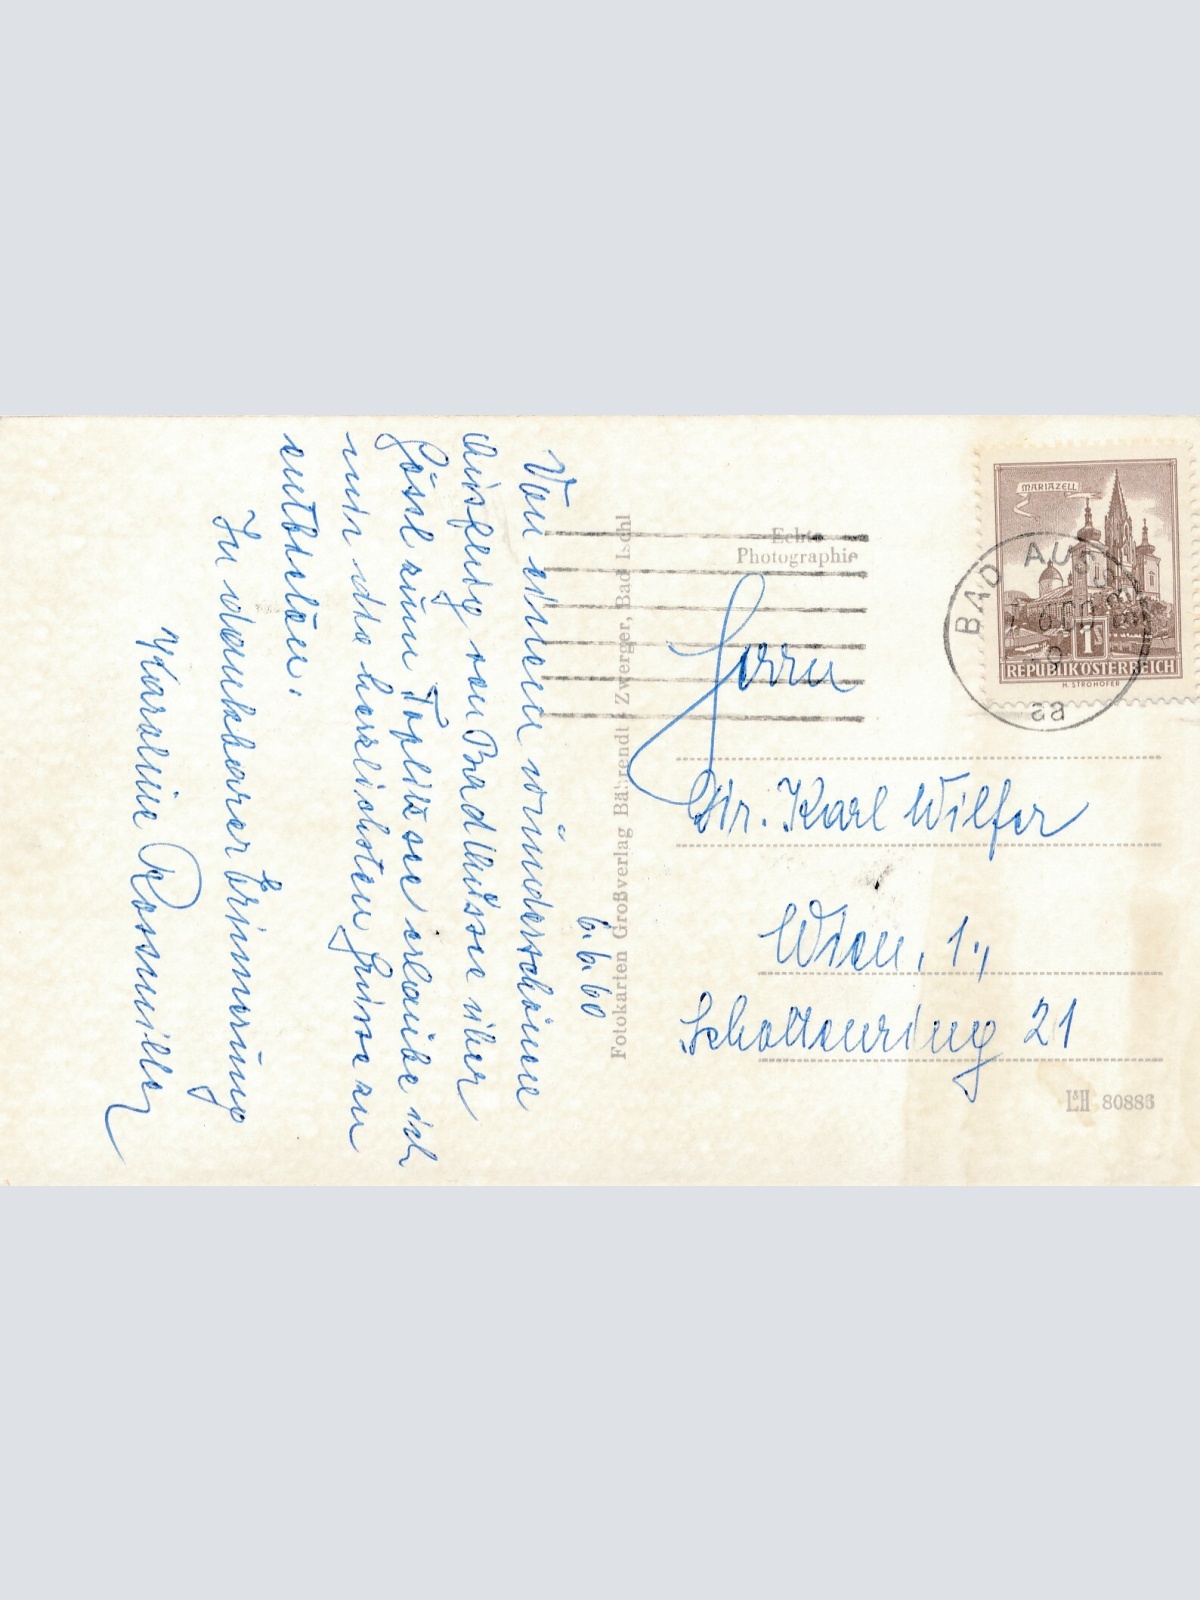 6.6.60
Von einem wunderschönen
Ausflug von Bad Aussee über
Gössl zum Toplitzsee erlaube ich
mir die herzlichsten Grüsse zu
entbieten.
In dankbarer Erinnerung
Karoline
Fotokarten Großverlag Bährendt - Zwerger, Bad Ischl
Echte
Photographie
MARIAZELL
1S
REPUBLIK ÖSTERREICH
H. STROHOFER
BAD AUSSEE
8a
Herrn
Dr. Karl Wilfer
Wien, 1.,
Schottenring 21
L&H 80886